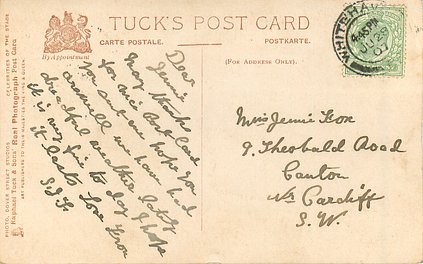 TUCK'S POST CARD
By Appointment
CARTE POSTALE.
POSTKARTE.
(FOR ADDRESS ONLY).
PHOTO, DOVER STREET STUDIOS
CELEBRITIES OF THE STAGE
Raphael Tuck & Sons' Real Photograph Post Card
PUBLISHERS TO THEIR MAJESTIES THE KING & QUEEN
WHITEHAVEN
JU 25
07
Dear
Jennie,
Many thanks
for nice Post Card
you sent me hope you
are well we have had
dreadful weather lately
it is very fine to day I hope
it lasts Love from
Miss Jennie Fox
9. Theobald Road
Canton
Nr Cardiff
S. W.